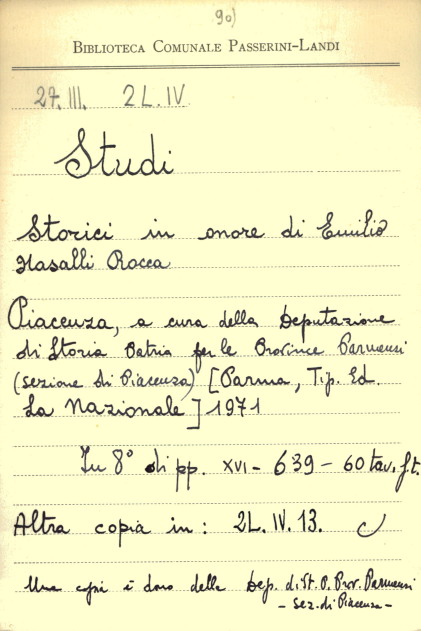 90)
BIBLIOTECA COMUNALE PASSERINI-LANDI
27. III. 2L. IV
Studi
Storici in onore di Emilio
Nasalli Rocca
Piacenza, a cura della Deputazione
di Storia Patria per le Province Parmensi
(sezione di Piacenza) [Parma, Tip. Ed.
La Nazionale] 1971
In 8° di pp. XVI - 639 - 60 tav. f.t.
Altra copia in: 2L. IV. 13.
Una copi è dono della Dep. di St. P. Prov. Parmensi
- sez. di Piacenza -